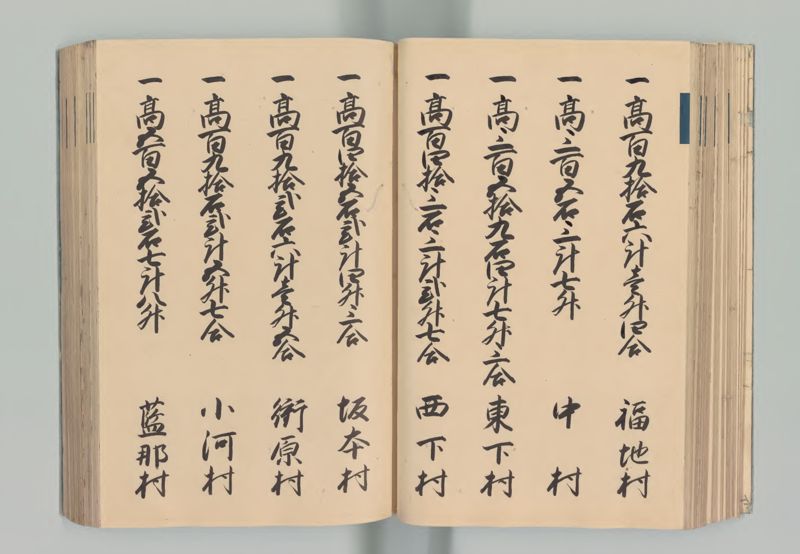 一高百九拾石六斗壱升四合 福地村
一高三百五石三斗七升 中村
一高三百五拾九石四斗七升三合 東下村
一高百四拾三石三斗弐升七合 西下村
一高百四拾五石弐斗四升三合 坂本村
一高百九拾弐石六斗壱升五合 衝原村
一高百九拾石弐斗五升七合 小河村
一高五百五拾弐石七斗八升 藍那村